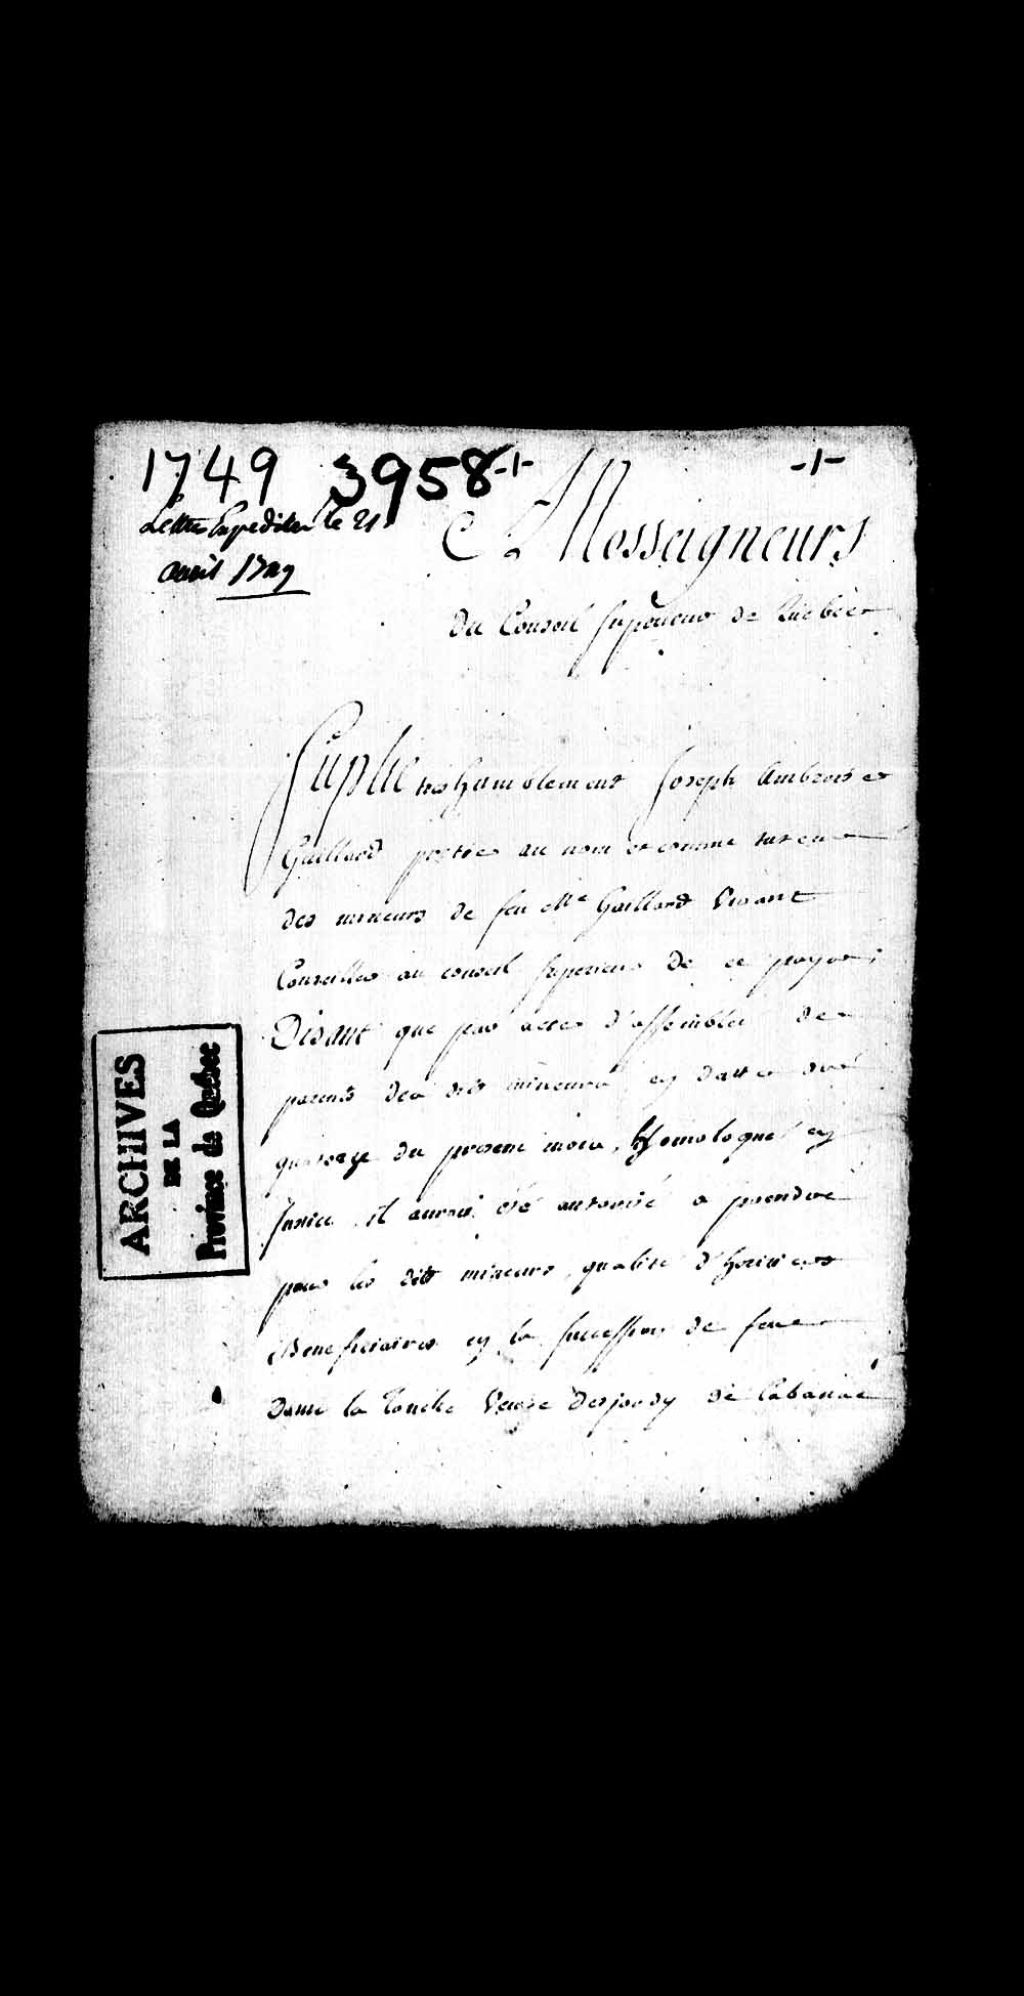 1749 3958 -1- -1-
Lettres Expediées le 21
avril 1749
A Nosseigneurs
Du Conseil superieur de Quebec
Suplie tres humblement Joseph Ambroise
Gaillard prestre au nom et comme tuteur
des mineurs de feu Mre Gaillard Vivant
Conseiller au conseil superieur de ce pays
Disant que par acte d'assemblée de
parents des dits mineurs en datte du
quatorze du present mois, homologué en
Justice, il auroit été autorisé a prendre
pour les dits mineurs, qualité d'heritiers
Beneficiaires en la succession de feue
Dame la Touche Veuve Desjordy de Cabanac
ARCHIVES
DE LA
Province de Québec